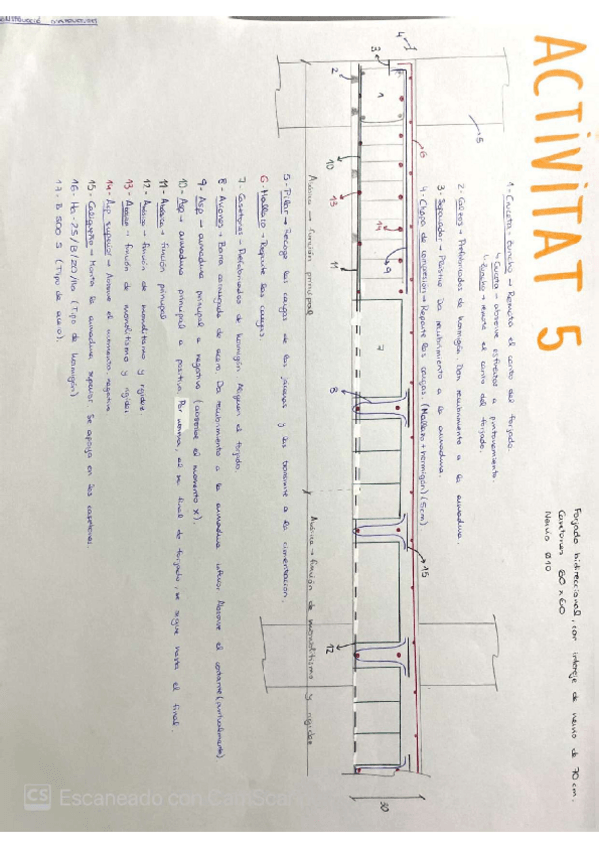 ACTIVITAT 5
Forjado bidireccional, con intereje de nervio de 70 cm.
Casetones 60 x 60
Nervio Ø10
1- Zuncho → Remata el canto del forjado.
absorve esfuerzos a punzonamiento.
Zuncho → remata el canto del forjado.
2- Galetas → Prefabricados de hormigón. Dan recubrimiento a la armadura.
3- Separador → Plástico. Da recubrimiento a la armadura.
4- Chapa de compresión → Reparte las cargas. (Mallazo + hormigón) (5cm).
4
3
2
1
5
6
10
13
14
11
9
7
8
15
12
30
Armado → función principal
Armado → función de monolitismo y rigidez
5- Pilar → Recoge las cargas de las y las transmite a la cimentación.
6- Mallazo → Reparte las cargas.
7- Casetones → Prefabricados de hormigón. Aligeran el forjado.
8- Barra corrugada de acero. Da recubrimiento a la armadura inferior. Absorve el cortante (puntualmente)
9- Asp → armadura principal a negativo (absorve el momento x).
10- Asp → armadura principal a positivo. Por norma, al final de forjado, se sigue hasta el final.
11- función principal
12- función de monolitismo y rigidez.
13- función de monolitismo y rigidez
14- Asp superior → Absorve el momento negativo
15- → Monta la armadura superior. Se apoya en los casetones.
16- Ha-25/B/20/IIa (Tipo de hormigón)
17- B 500 S (Tipo de acero).
CS Escaneado con CamScanner